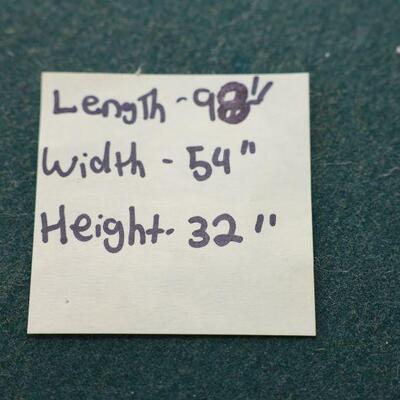 Length - 98"
Width - 54"
Height - 32"